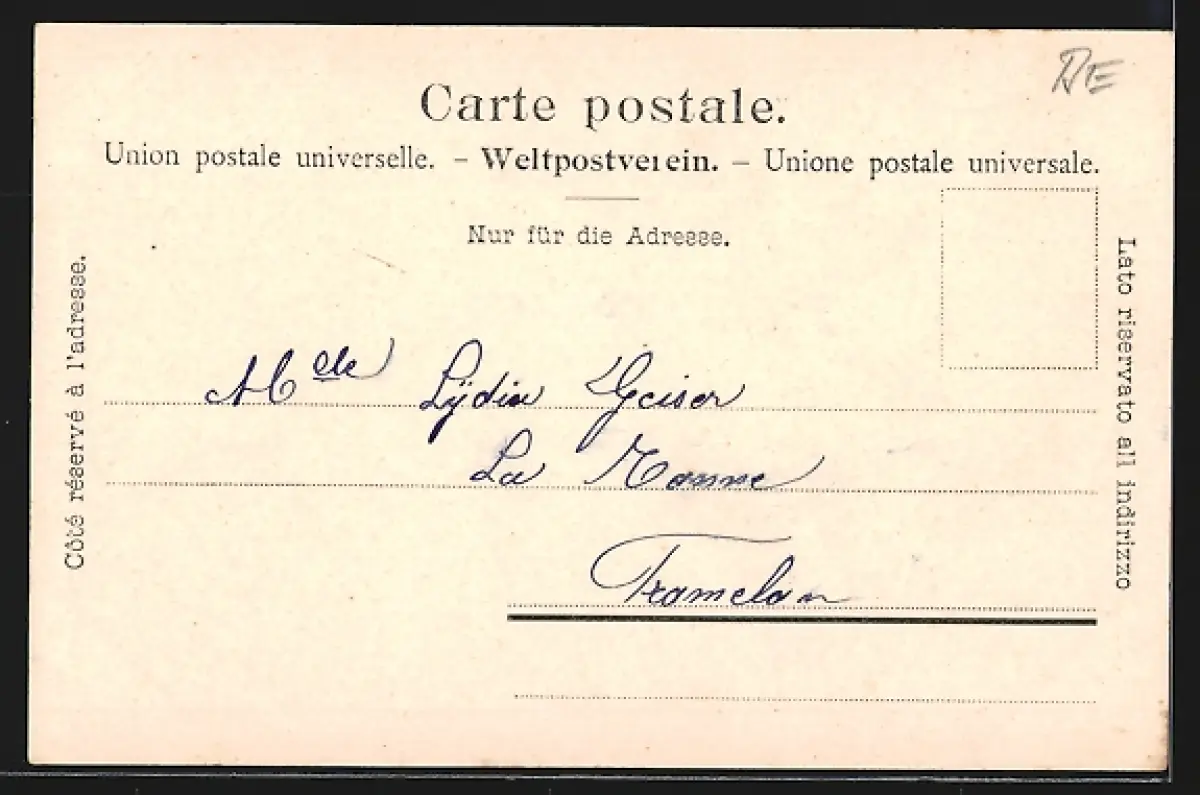 Carte postale.
Union postale universelle. – Weltpostverein. – Unione postale universale.
Nur für die Adresse.
Côté réservé à l'adresse.
Lato riservato all indirizzo
Melle Lydia Geiser
La
Tramelan